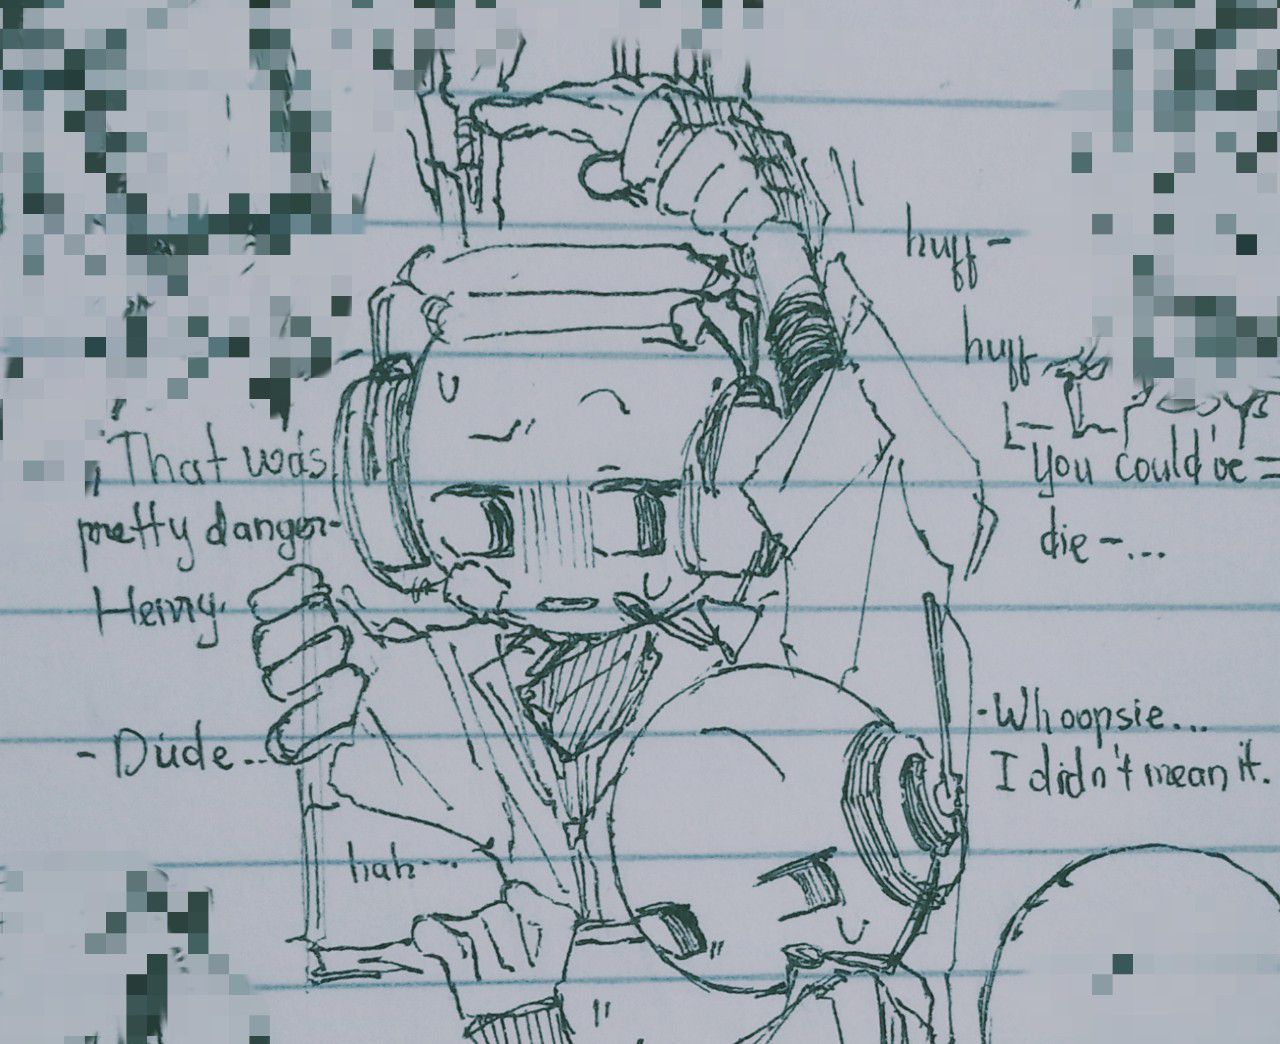 huff-
huff
You could've
die-...
That was
pretty danger-
Henry.
- Dude...
- Whoopsie...
I didn't mean it.
hah....